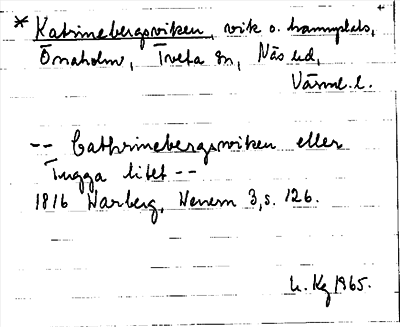 * Katrinebergsviken, vik o. hamnplats,
Önaholm, Tveta sn, Näs hd,
Värml. l.
-- Cathrinebergsviken eller
Tugga litet --
1816 Warberg, Wenern 3, s. 126.
h. Kg 1965.